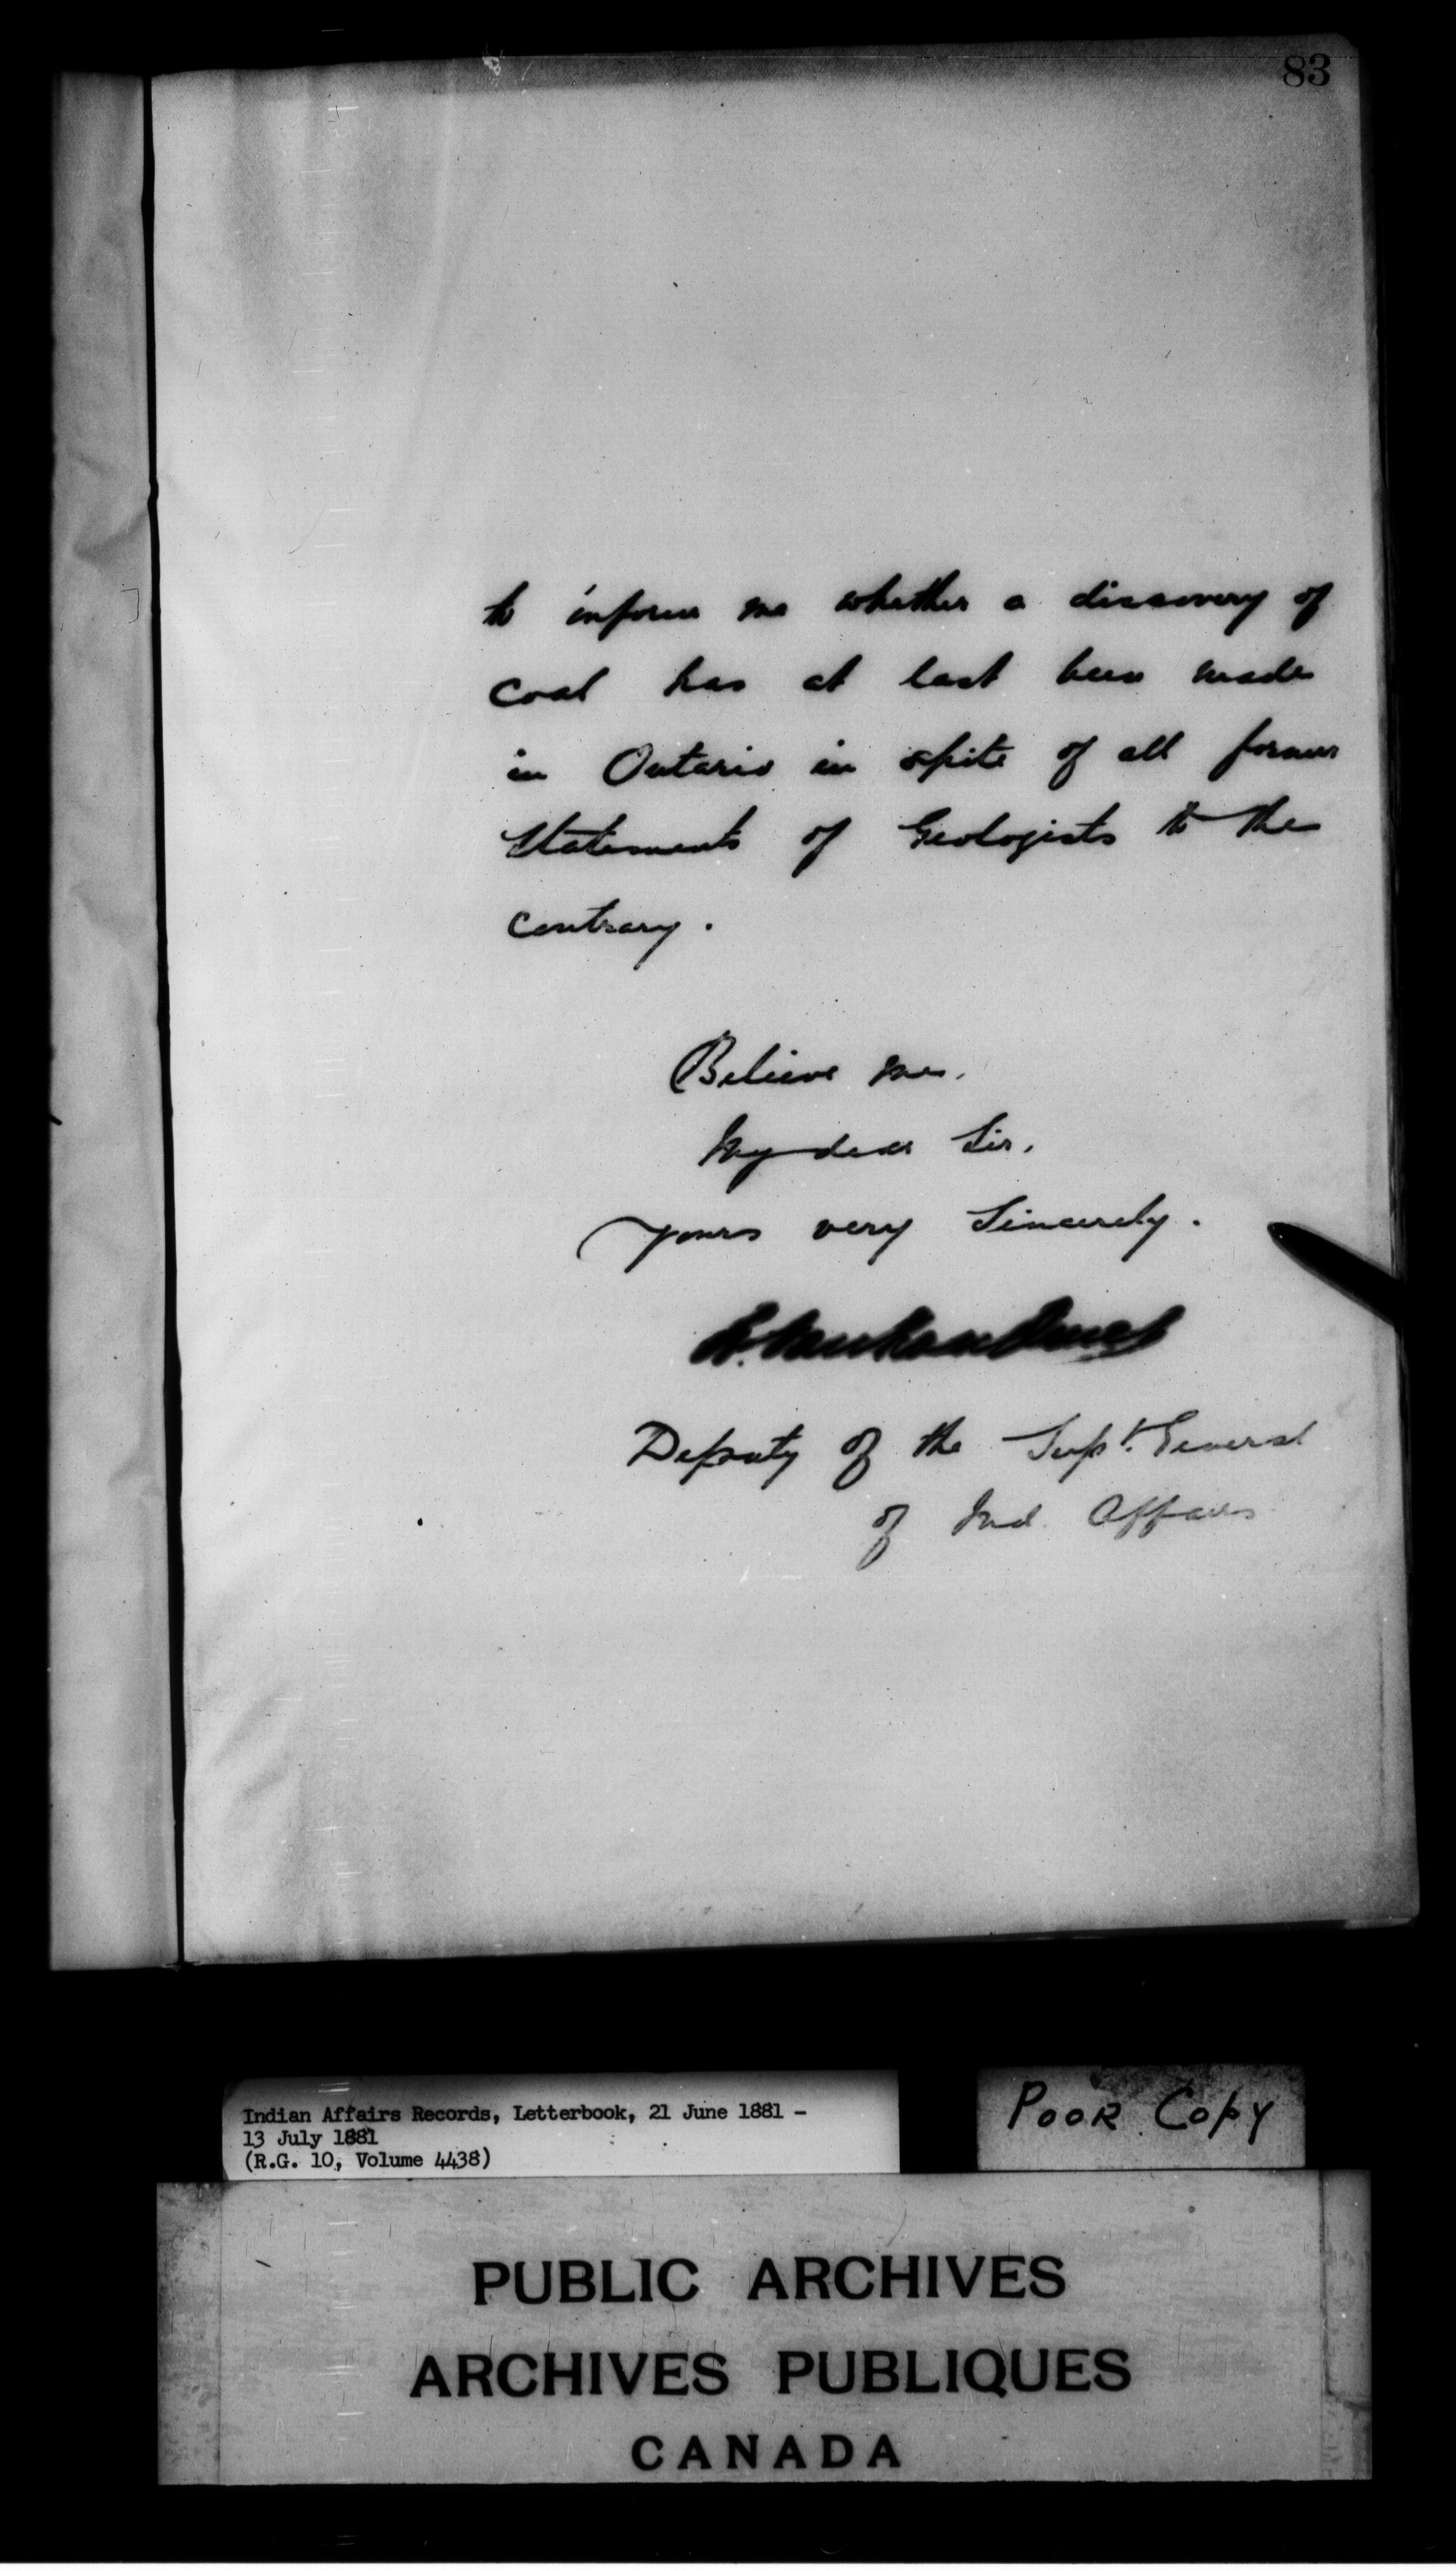 83
to inform me whether a discovery of
Coal has at last been made
in Ontario in spite of all former
Statements of Geologists to the
Contrary.
Believe me,
My dear Sir,
Yours very Sincerely.
Deputy of the Supt. General
of Ind. Affairs
Indian Affairs Records, Letterbook, 21 June 1881 -
13 July 1881
(R.G. 10, Volume 4438)
POOR Copy
PUBLIC ARCHIVES
ARCHIVES PUBLIQUES
CANADA